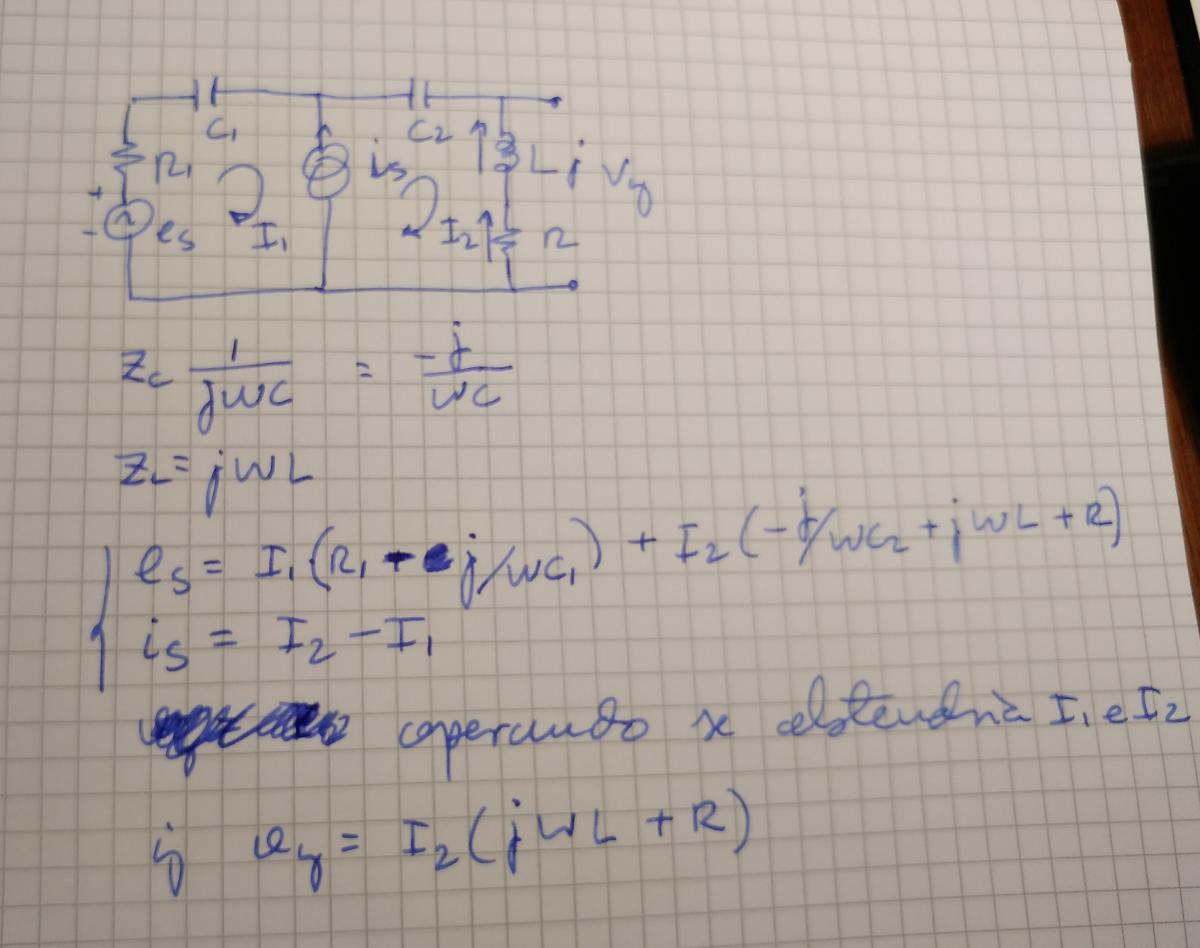 C₁ C₂
R₁ is L j Vy
+
- es I₁ I₂ R
Zc 1/jwc = -j/wc
ZL = jwL
es = I₁(R₁ - j/wC₁) + I₂(-j/wC₂ + jwL + R)
is = I₂ - I₁
operando se obtendría I₁ e I₂
y vy = I₂(jwL + R)